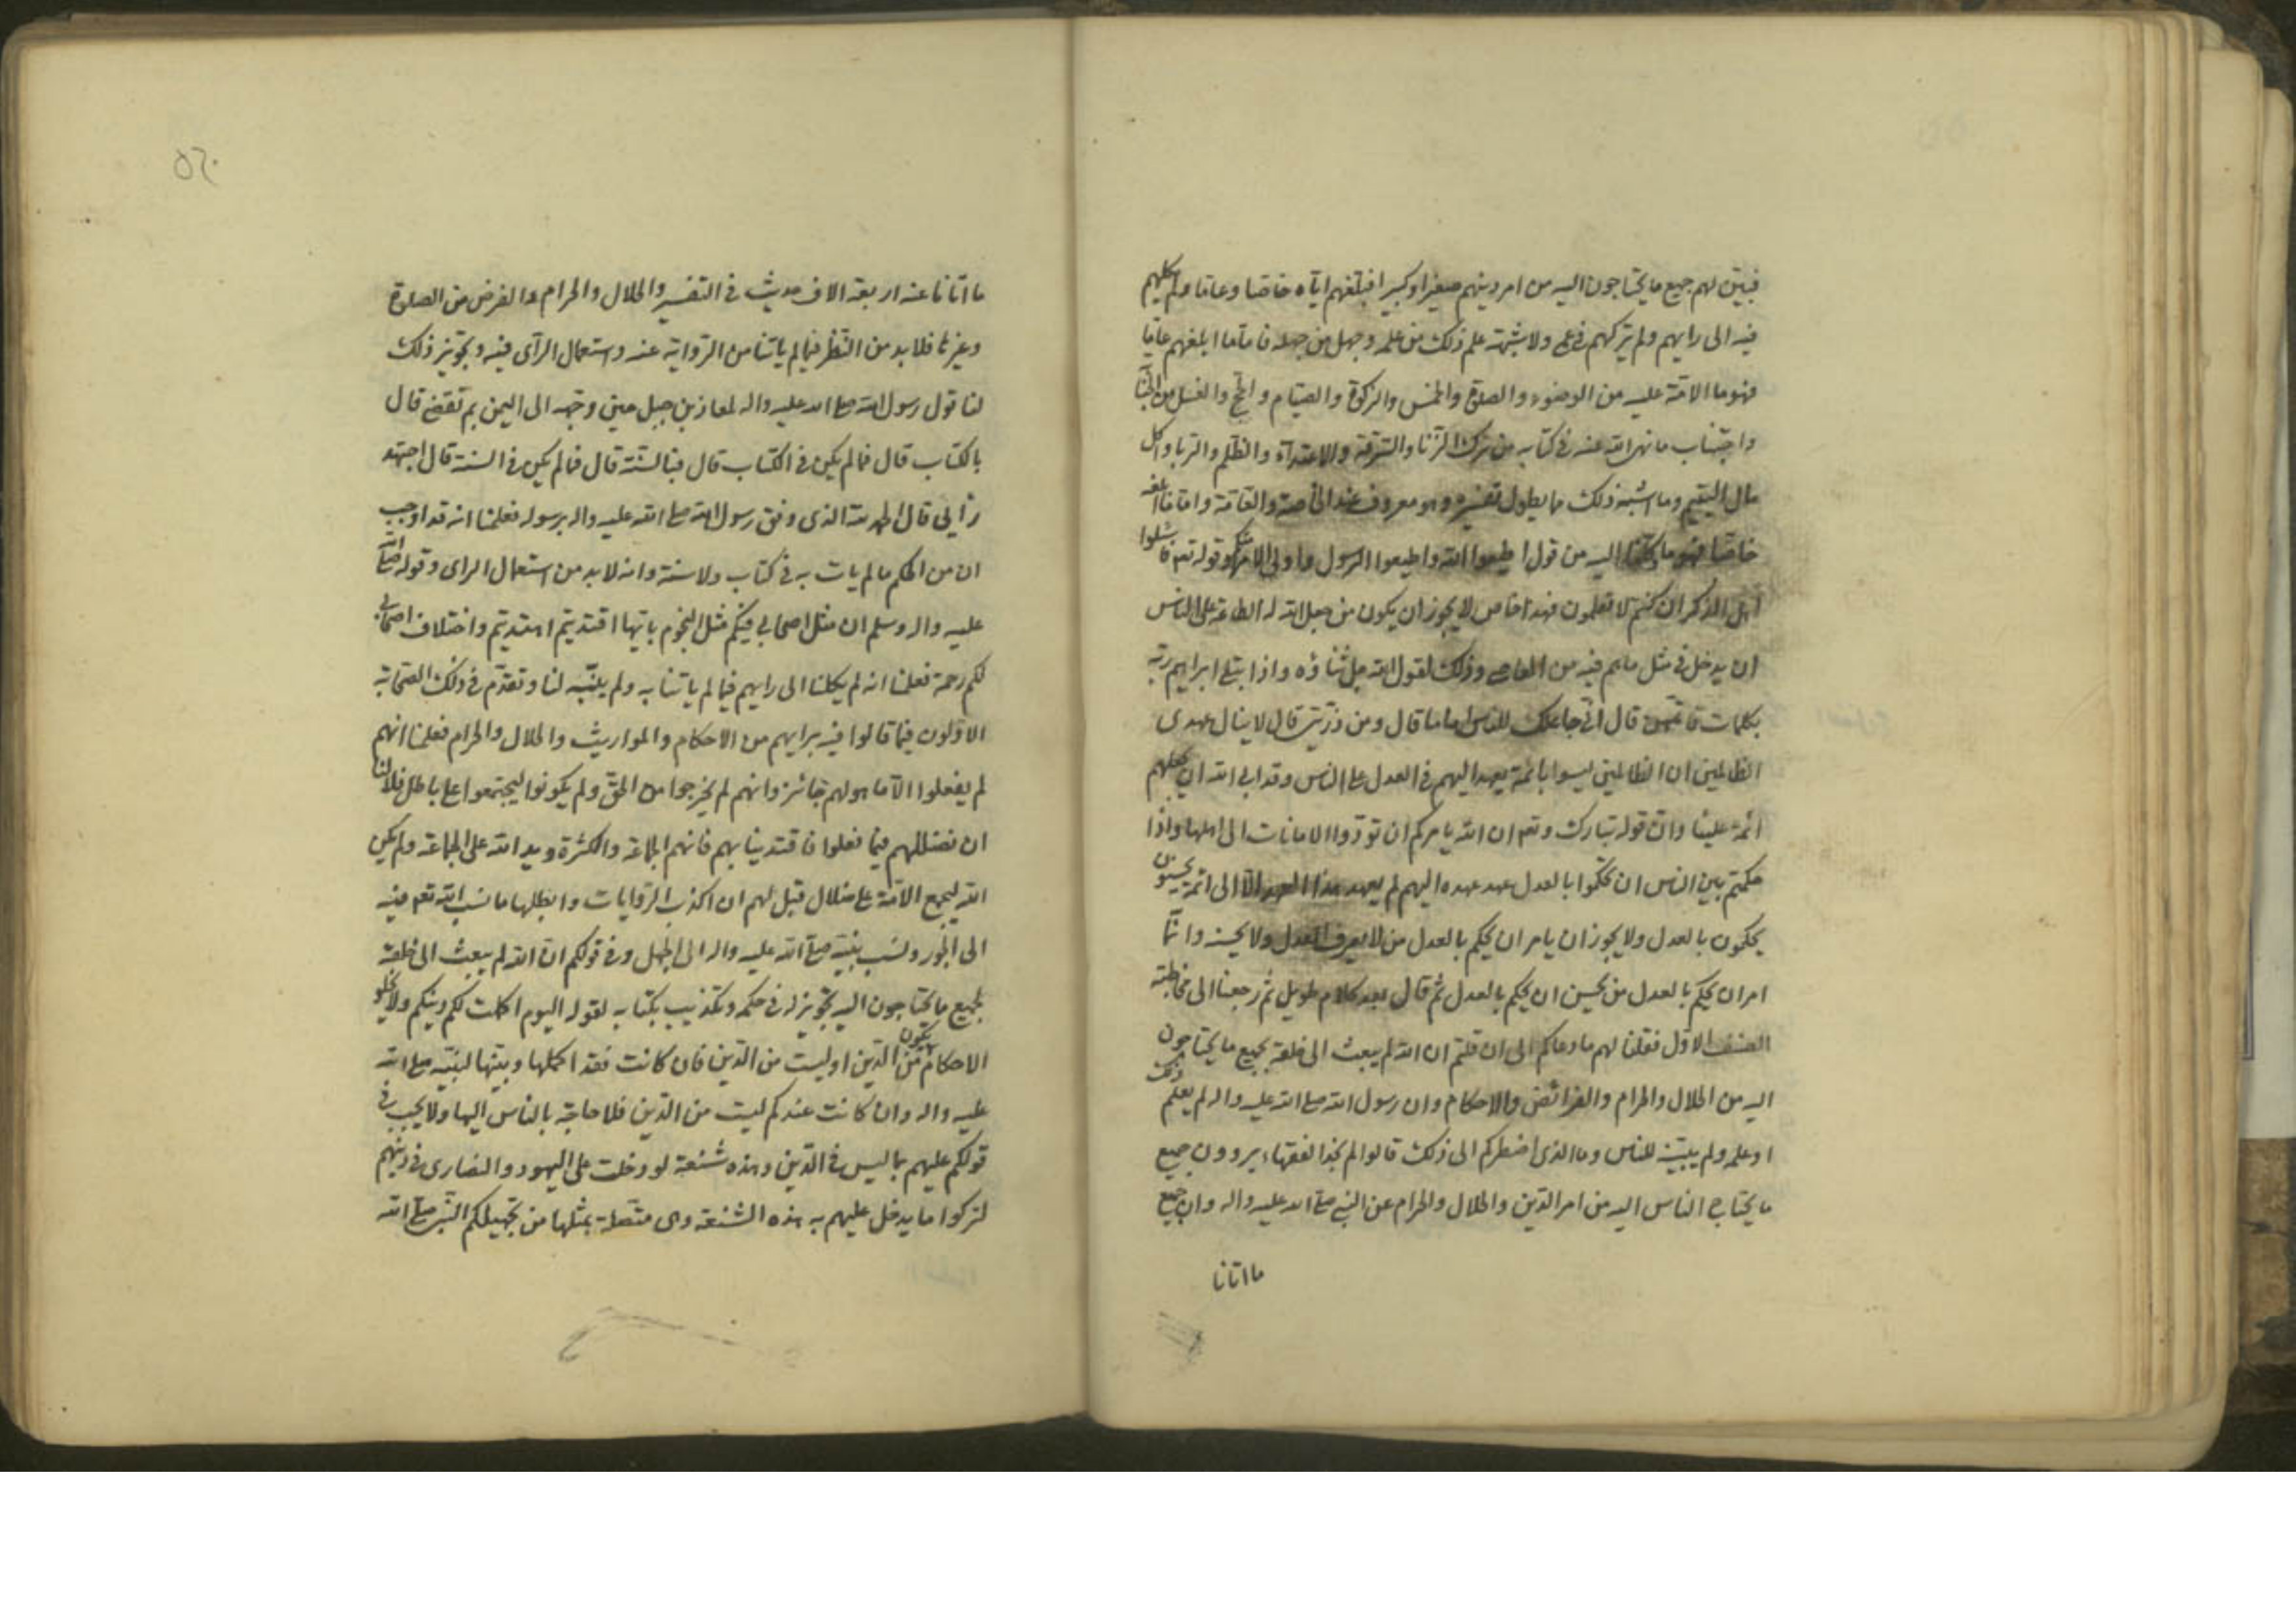 فبيّن لهم جميع ما يحتاجون اليه من امر دينهم صغيرا وكبيرا فبلّغهم ايّاه خاصّا وعامّا ولم يكلهم
فيه الى رايهم ولم يتركهم في عمى ولا شبهة علم ذلك من علمه وجهل من جهله فامّا ما ابلغهم عامّا
فهو ما الامّة عليه من الوضوء والصلوة والخمس والزكوة والصيام والحجّ والغسل من الجنابة
واجتناب ما نهى الله عنه في كتابه من ترك الزّنا والسّرقة والاعتداء والظّلم والرّبا واكل
مال اليتيم وما اشبه ذلك مما يطول تفسيره وهو معروف عند الخاصة والعامّة وامّا ما ابلغه
خاصّا فهو ما وكلنا اليه من قول اطيعوا الله واطيعوا الرسول واولى الامر منكم وقوله تعه فاسئلوا
اهل الذكر ان كنتم لا تعلمون فهذا خاص لا يجوز ان يكون من جعل الله له الطاعة على الناس
ان يدخل في مثل ما هم فيه من المعاصي وذلك لقول الله جل ثناؤه واذ ابتلى ابراهيم ربّه
بكلمات فاتمّهنّ قال انّي جاعلك للناس اماما قال ومن ذرّيتي قال لا ينال عهدى
الظالمين ان الظالمين ليسوا بائمّة يعهد اليهم في العدل على الناس وقد ابى الله ان يجعلهم
ائمّة علينا وانّ قوله تبارك وتعه ان الله يامركم ان تؤدّوا الامانات الى اهلها واذا
حكمتم بين الناس ان تحكموا بالعدل عهد عهده اليهم لم يعهد هذا العهد الّا الى ائمّة يحسنون
يحكمون بالعدل ولا يجوز ان يامر ان يحكم بالعدل من لا يعرف العدل ولا يحسنه وانّما
امر ان يحكم بالعدل من يحسن ان يحكم بالعدل ثم قال بعد كلام طويل ثم رجعنا الى مخاطبة
الصنف الاوّل فقلنا لهم ما دعاكم الى ان قلتم ان الله لم يبعث الى خلقه بجميع ما يحتاجون
اليه من الحلال والحرام والفرائض والاحكام وان رسول الله صلى الله عليه واله لم يعلم ذلك
او علمه ولم يبيّنه للناس وما الذى اضطركم الى ذلك قالوا لم نجد الفقهاء يروون جميع
ما يحتاج الناس اليه من امر الدّين والحلال والحرام عن النبي صلى الله عليه واله وان جميع
ما اتانا
ما اتانا عنه اربعة الاف حديث في التفسير والحلال والحرام والفرض من الصلوة
وغيرها فلا بد من النّظر فيما لم ياتنا من الرّواية عنه واستعمال الرّأى فيه وتجويز ذلك
لنا قول رسول الله صلى الله عليه واله لمعاذ بن جبل حين وجّهه الى اليمن بم تقضي قال
بالكتاب قال فما لم يكن في الكتاب قال فبالسّنّة قال فما لم يكن في السنة قال اجتهد
رأيي قال الحمد لله الذى وفق رسول الله صلى الله عليه واله برسوله فعلمنا انه قد اوجب
ان من الحكم ما لم يات به في كتاب ولا سنة وانه لا بد من استعمال الراى وقوله صلى الله
عليه واله وسلم ان مثل اصحابي فيكم مثل النجوم بايّها اقتديتم اهتديتم واختلاف اصحابي
لكم رحمة فعلمنا انه لم يكلنا الى رايهم فيما لم ياتنا به ولم يبيّنه لنا وتقدّم في ذلك الصّحابة
الاوّلون فيما قالوا فيه برايهم من الاحكام والمواريث والحلال والحرام فعلمنا انهم
لم يفعلوا الّا ما هو لهم جائز وانهم لم يخرجوا من الحقّ ولم يكونوا ليجتمعوا على باطل فلا لنا
ان نضللهم فيما فعلوا فاقتدينا بهم فانهم الجماعة والكثرة ويد الله على الجماعة ولم يكن
الله ليجمع الامّة على ضلال قيل لهم ان اكذب الرّوايات وابطلها ما نسب الله تعه فيه
الى الجور ونسب نبيّه صلى الله عليه واله الى الجهل وفي قولكم انّ الله لم يبعث الى خلقه
بجميع ما يحتاجون اليه تجويز له في حكمه وتكذيب بكتابه لقوله اليوم اكملت لكم دينكم ولا يخلو
الاحكام ان يكون من الدّين او ليست من الدّين فان كانت فقد اكملها وبيّنها لنبيّه صلى الله
عليه واله وان كانت عندكم ليست من الدّين فلا حاجة بالناس اليها ولا يجب في
قولكم عليهم بما ليس في الدّين وهذه شنعة لو دخلت على اليهود والنصارى في دينهم
لتركوا ما يدخل عليهم به هذه الشنعة وهى متّصلة بمثلها من تجهيلكم النّبي صلى الله